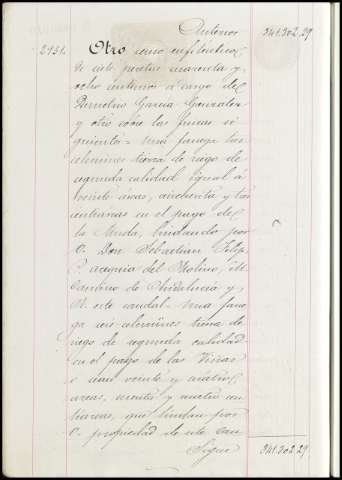 Anterior 341.302,29
2931. Otro censo enfiteutico
de siete pesetas cuarenta y
ocho centimos á cargo de
García Gonzalez
y otro sobre las fincas si
guientes = Una fanega tres
celemines tierra de riego de
segunda calidad igual á
veinte áreas, cincuenta y tres
centiareas en el pago de
la linda, lindando por
O. Don Sebastian Felip
P. acequia del Molino, M.
camino de y
N. este caudal = Una fane
ga seis celemines tierra de
riego de segunda calidad
en el pago de las Viñas
o sean veinte y cuatro
areas, y cuatro cen
tiareas, que lindan por
O. propiedad de este cau
Sigue 341.302,29